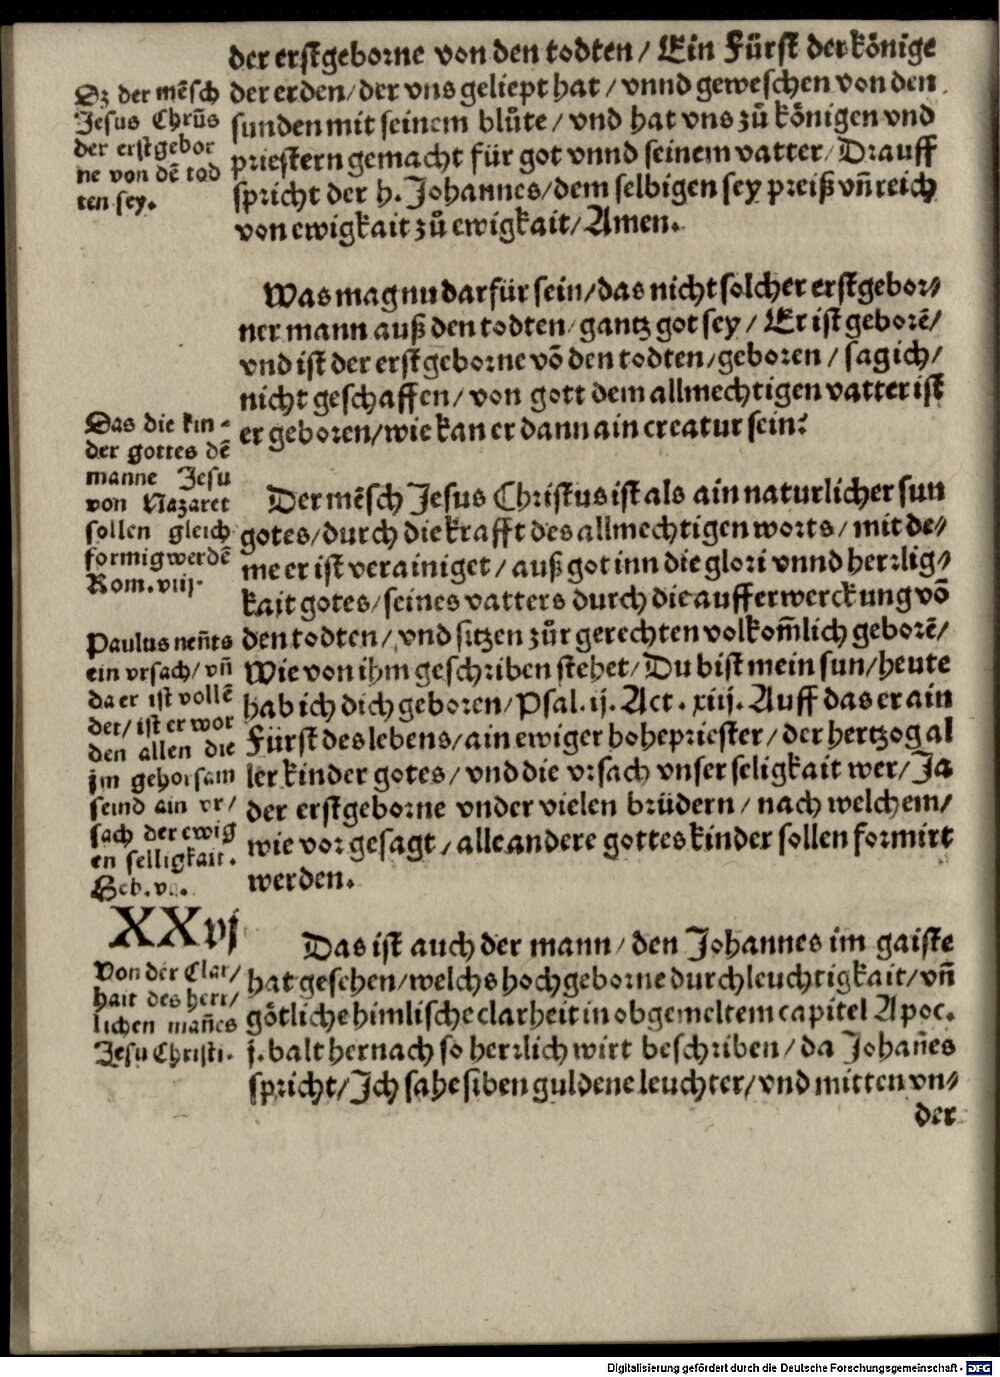 der erstgeborne von den todten / Ein Fürst der könige
der erden / der vns geliept hat / vnnd geweschen von den
sunden mit seinem blůte / vnd hat vns zů königen vnd
priestern gemacht für got vnnd seinem vatter / Drauff
spricht der h. Johannes / dem selbigen sey preiß vñ reich
von ewigkait zů ewigkait / Amen.
Dz der mẽsch
Jesus Chrũs
der erstgebor
ne von dẽ tod
ten sey.
Was mag nu darfür sein / das nicht solcher erstgebor⸗
ner mann auß den todten / gantz got sey / Er ist geborẽ /
vnd ist der erstgeborne võ den todten / geboren / sag ich /
nicht geschaffen / von gott dem allmechtigen vatter ist
er geboren / wie kan er dann ain creatur sein?
Das die kin⸗
der gottes dẽ
manne Jesu
von Nazaret
sollen gleich
formig werdẽ
Rom. viij.
Der mẽsch Jesus Christus ist als ain naturlicher sun
gotes / durch die krafft des allmechtigen worts / mit de⸗
me er ist verainiget / auß got inn die glori vnnd herrlig⸗
kait gotes / seines vatters durch die aufferwerckung võ
den todten / vnd sitzen zůr gerechten volkom̃lich geborẽ /
Wie von ihm geschriben stehet / Du bist mein sun / heute
hab ich dich geboren / Psal. ij. Act. xiij. Auff das er ain
Fürst des lebens / ain ewiger hohepriester / der hertzog al
ler kinder gotes / vnd die vrsach vnser seligkait wer / Ja
der erstgeborne vnder vielen brüdern / nach welchem /
wie vor gesagt / alle andere gottes kinder sollen formirt
werden.
Paulus nen̄ts
ein vrsach / vñ
da er ist vollẽ
det / ist er wor
den allen die
jm gehorsam
seind ain vr /
sach der ewig
en selligkait.
Heb. v.
XXvj
Das ist auch der mann / den Johannes im gaiste
hat gesehen / welchs hochgeborne durchleuchtigkait / vñ
götliche himlische clarheit in obgemeltem capitel Apoc.
j. balt hernach so herrlich wirt beschriben / da Johañes
spricht / Ich sahe siben guldene leuchter / vnd mitten vn⸗
der
Von der Clar /
hait des herr /
lichen mañes
Jesu Christi.
Digitalisierung gefördert durch die Deutsche Forschungsgemeinschaft - DFG